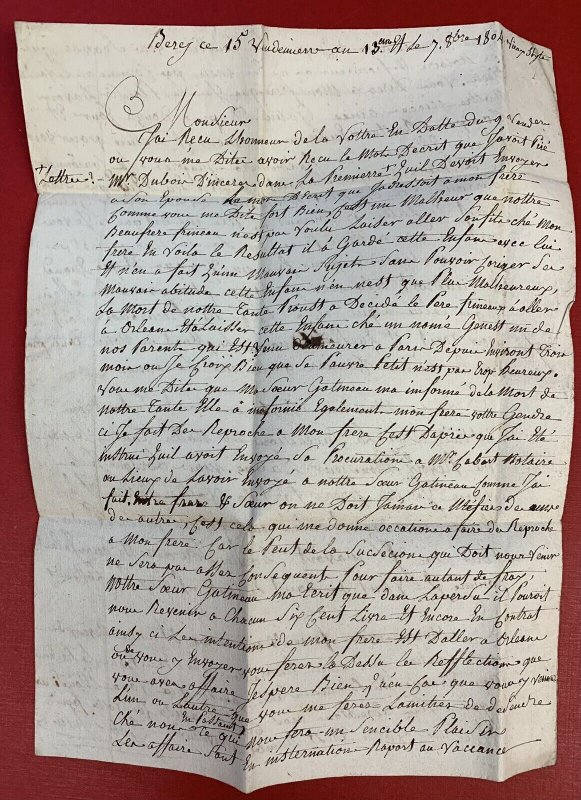 Bercy ce 15 Vendemiere an 13.eme Et Le 7. 8bre 1804 vieux Style
Monsieur
J'ai Reçu L'honneur de la Vottre En Datte du 9 Vender
ou vous me Dite avoir Reçu Le Mote Decrit que J'avoit
+ Lattres. Mr. Dubois dans La Premierre quil Devoit Envoyer
a Son Epouse Le mot Decrit que J'adressoit a mon frere
Comme vous me Dite fort Bien C'est un Malheur que nottre
Beaufrere frineau n'est pas voulu Laiser aller Son fils ché Mon
frere En Voila Le Resultat il à Gardé cette Enfans avec lui
Et n'en a fait qu'un Mauvais Sujet Sans Pouvoir Coriger Sa
Mauvais abitude cette Enfans n'en nest que Plus Malheureux,
La Mort de nottre tante Proust a Decidé Le Pere frineaux a aller
a Orleans Et a Laisser cette Enfans ché un nome Genest un de
nos Parents qui Est Venu Demeurer a Paris Depuis Environt trois
mois ou Je Crois Bien que Se Pauvre Petit n'est pas trop heureux.
vous me Dite que Ma Sœur Gatineau ma informe de la Mort de
nottre tante Elle à informé Egalement mon frere vottre Gendre
ci Je fait De Reproche a Mon frere C'est D'apres que J'ai Eté
instrui quil avoit Envoyé Sa Procuration a Mr. Cabart Notaire
au Lieux de Lavoir Envoyé a nottre Sœur Gatineau Comme J'ai
fait. Entre frere Et Sœur on ne Doit Jamais ce Mefier des uns
des autres C'est cela que me donne occations a faire des Reproche
a Mon frere Car Le Peut de la Sucsecions que Doit nous Venir
ne Sera pas assez Consequent Pour faire autant de fray,
Nottre Sœur Gatineau ma Ecrit que dans Lapersu il Pouroit
nous Revenir a Chacun Six Cent Livre Et Encore En Contrat
ainsy ci Les intentions de Mon frere Est Daller a Orleans
ou De vous y Envoyer vous ferez La Dessu Les Refflections que
vous avez affaire Jespere Bien qu'en Cas que vous y venier
Lun ou Lautre que vous me ferez Lamitier de Desendre
Ché nous En Passant Ce qui nous fera un Sencible Plaisir
Les affaire Sont En Raport au Vaccance